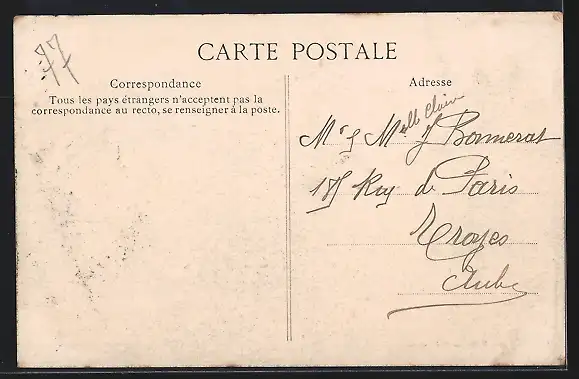 77
CARTE POSTALE
Correspondance
Tous les pays étrangers n'acceptent pas la
correspondance au recto, se renseigner à la poste.
Adresse
elle Claire
Mr & M J Bonnerat
Rue de Paris
Troyes
Aube